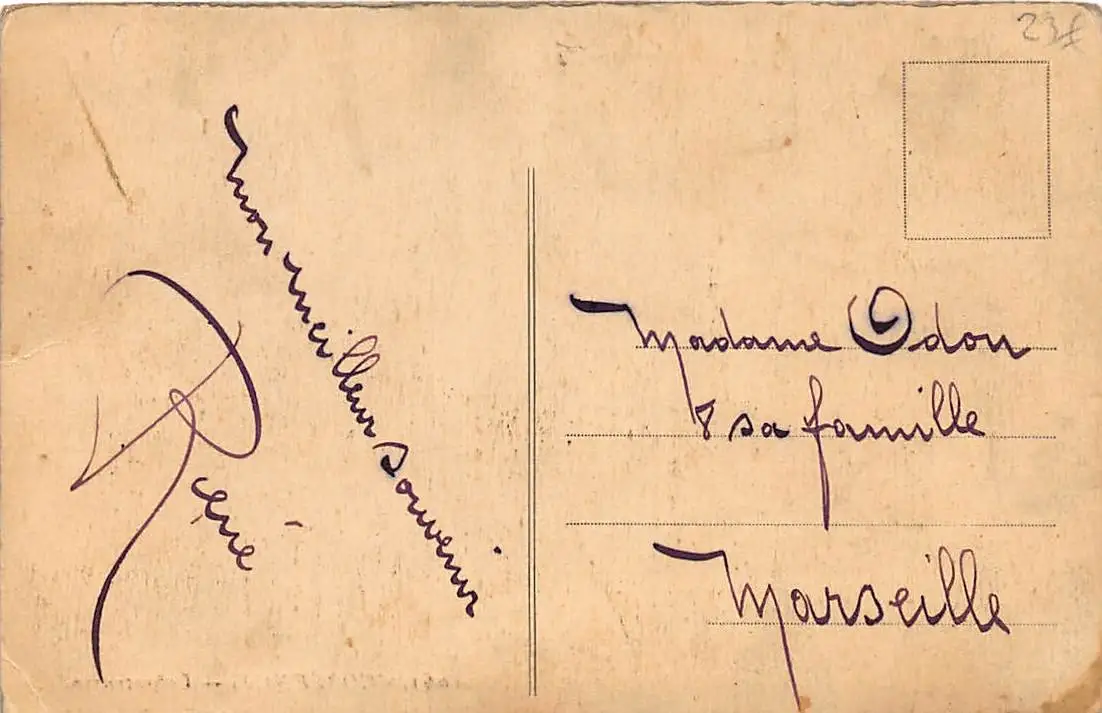 23f
mon meilleur souvenir
René
Madame Odon
& sa famille
Marseille